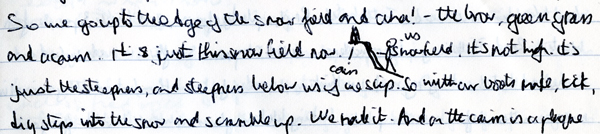 So we go up to the edge of the snow field and aha! - the brow, green grass
and a cairn. It is just this snow field now. us
! snowfield. It's not high. It's
cairn
just the steepness, and steepness below us if we slip. So with our boots make, kick,
dig steps into the snow and scramble up. We make it. And on the cairn is a plaque